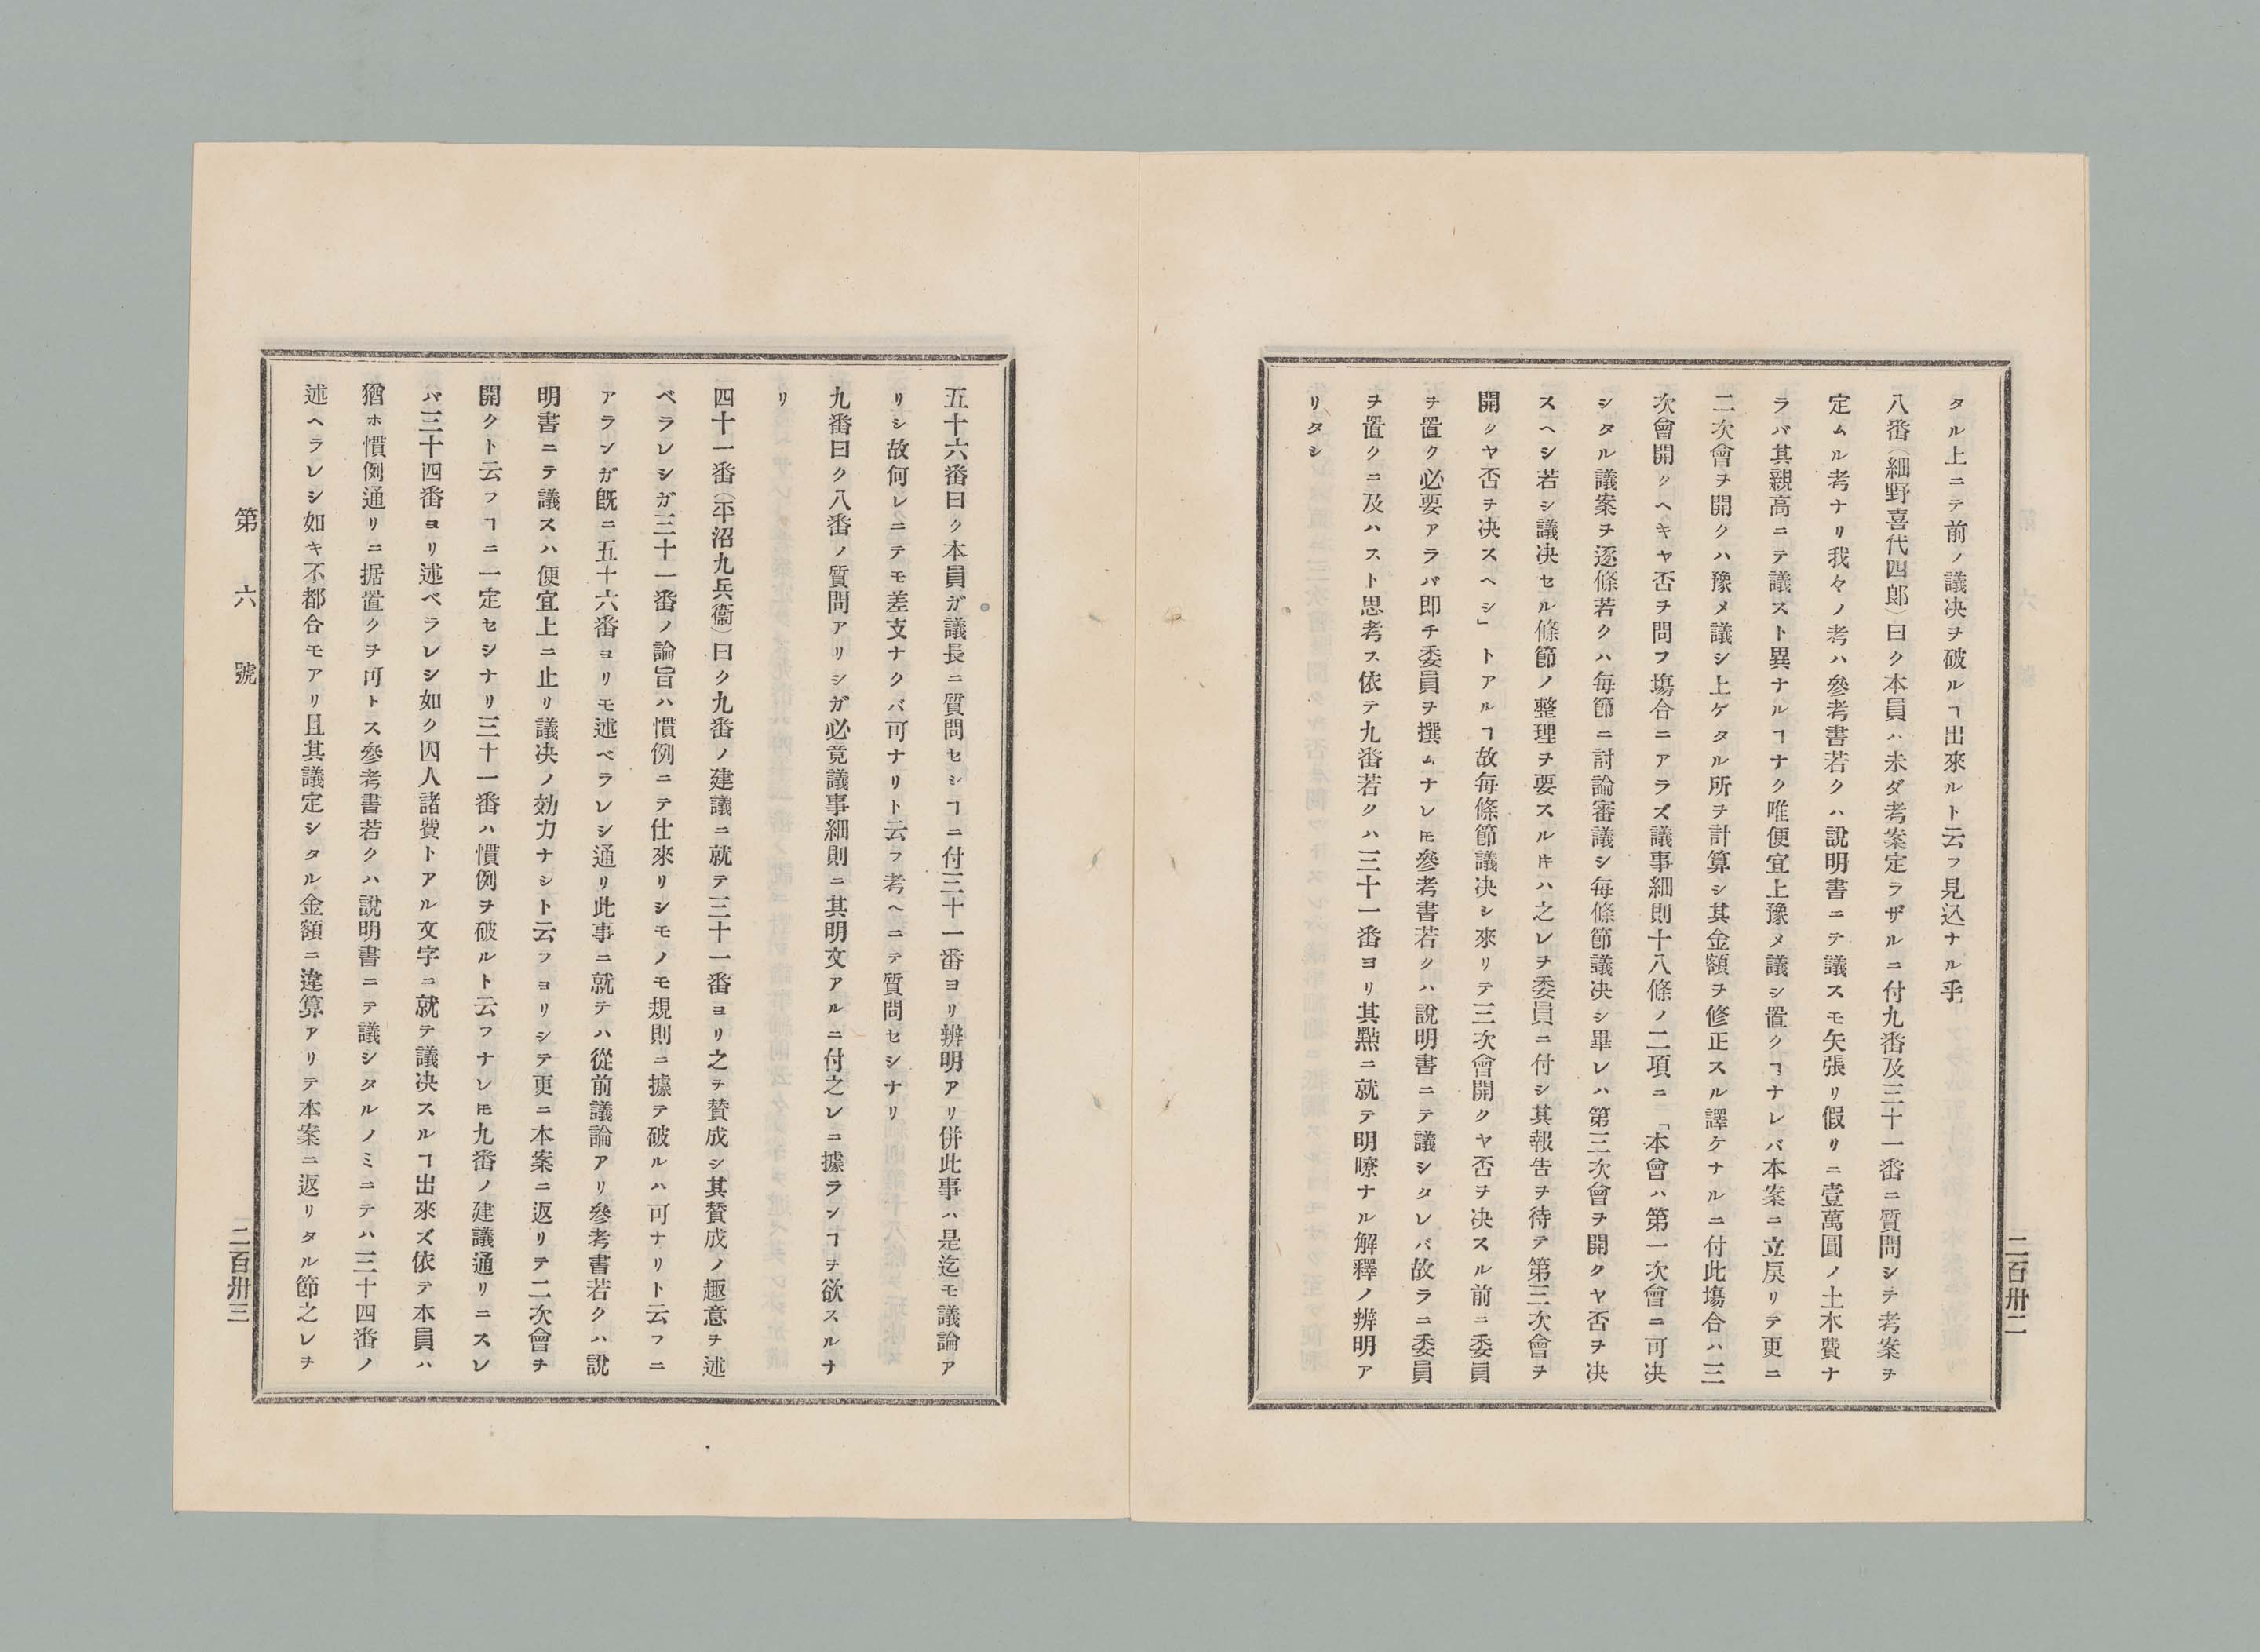 二百卅二
タル上ニテ前ノ議决ヲ破ルヿ出來ルト云フ見込ナル乎
八番（細野喜代四郎）曰ク本員ハ未ダ考案定ラザルニ付九番及三十一番ニ質問シテ考案ヲ
定ムル考ナリ我々ノ考ハ參考書若クハ說明書ニテ議スモ矢張リ假リニ壹萬圓ノ土木費ナ
ラバ其親高ニテ議スト異ナルヿナク唯便宜上豫メ議シ置クヿナレバ本案ニ立戾リテ更ニ
二次會ヲ開クハ豫メ議シ上ゲタル所ヲ計算シ其金額ヲ修正スル譯ケナルニ付此塲合ハ三
次會開クヘキヤ否ヲ問フ塲合ニアラズ議事細則十八條ノ二項ニ「本會ハ第一次會ニ可决
シタル議案ヲ逐條若クハ每節ニ討論審議シ每條節議决シ畢レハ第三次會ヲ開クヤ否ヲ决
スヘシ若シ議决セル條節ノ整理ヲ要スル𪜈ハ之レヲ委員ニ付シ其報告ヲ待テ第三次會ヲ
開クヤ否ヲ决スヘシ」トアルヿ故每條節議决シ來リテ三次會開クヤ否ヲ决スル前ニ委員
ヲ置ク必要アラバ即チ委員ヲ撰ムナレ𪜈參考書若クハ說明書ニテ議シタレバ故ラニ委員
ヲ置クニ及ハスト思考ス依テ九番若クハ三十一番ヨリ其㸃ニ就テ明瞭ナル解釋ノ辨明ア
リタシ
五十六番曰ク本員ガ議長ニ質問セシヿニ付三十一番ヨリ辨明アリ併此事ハ是迄モ議論ア
リシ故何レニテモ差支ナクバ可ナリト云フ考ヘニテ質問セシナリ
九番曰ク八番ノ質問アリシガ必竟議事細則ニ其明文アルニ付之レニ據ランヿヲ欲スルナ
リ
四十一番（平沼九兵衞）曰ク九番ノ建議ニ就テ三十一番ヨリ之ヲ賛成シ其賛成ノ趣意ヲ述
ベラレシガ三十一番ノ論旨ハ慣例ニテ仕來リシモノモ規則ニ據テ破ルハ可ナリト云フニ
アランガ旣ニ五十六番ヨリモ述ベラレシ通リ此事ニ就テハ從前議論アリ參考書若クハ說
明書ニテ議スハ便宜上ニ止リ議决ノ効力ナシト云フヨリシテ更ニ本案ニ返リテ二次會ヲ
開クト云フヿニ一定セシナリ三十一番ハ慣例ヲ破ルト云フナレ𪜈九番ノ建議通リニスレ
バ三十四番ヨリ述ベラレシ如ク囚人諸費トアル文字ニ就テ議决スルヿ出來ズ依テ本員ハ
猶ホ慣例通リニ据置クヲ可トス參考書若クハ說明書ニテ議シタルノミニテハ三十四番ノ
述ヘラレシ如キ不都合モアリ且其議定シタル金額ニ違算アリテ本案ニ返リタル節之レヲ
第六號
二百卅三